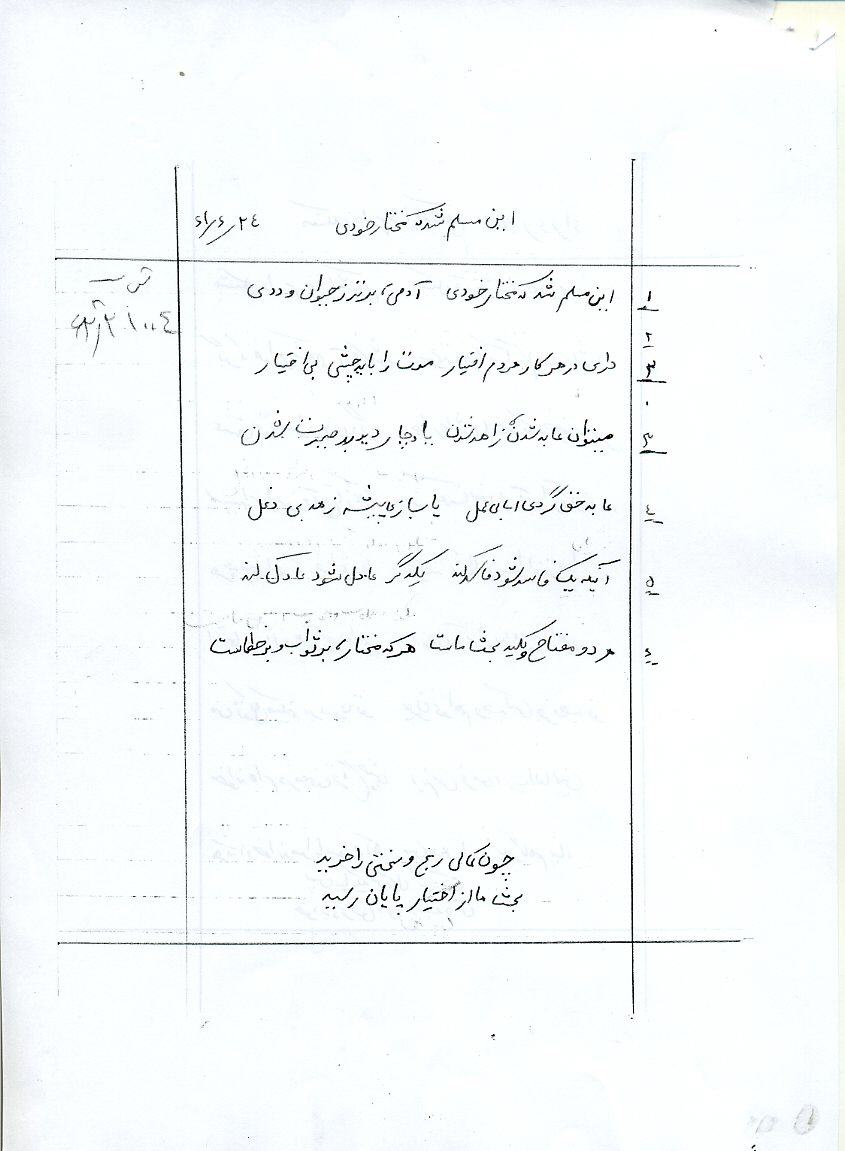 این مسلم شد که مختار خودی ۶۱/۶/۲۴
۱ این مسلم شد که مختار خودی آدمی، برتر ز حیوان و ددی
۲
۳ داری در هر کار مردم اختیار موت را باید چشی بی اختیار
۳ میتوان عابد شدن زاهد شدن یا دچار دیو بد سیرت شدن
٤ عابد حق گردی یا سازی پیشه زهد بی دغل
۵ آن یک فاسد شود فاسد کند یک دگر عادل شود عادل کند
۶ هر دو مفتاح و کلید بحث ماست هر که مختار، بر ثواب و بر خطاست
چون کمالی رنج و سختی را خرید
بحث ما از اختیار پایان رسید